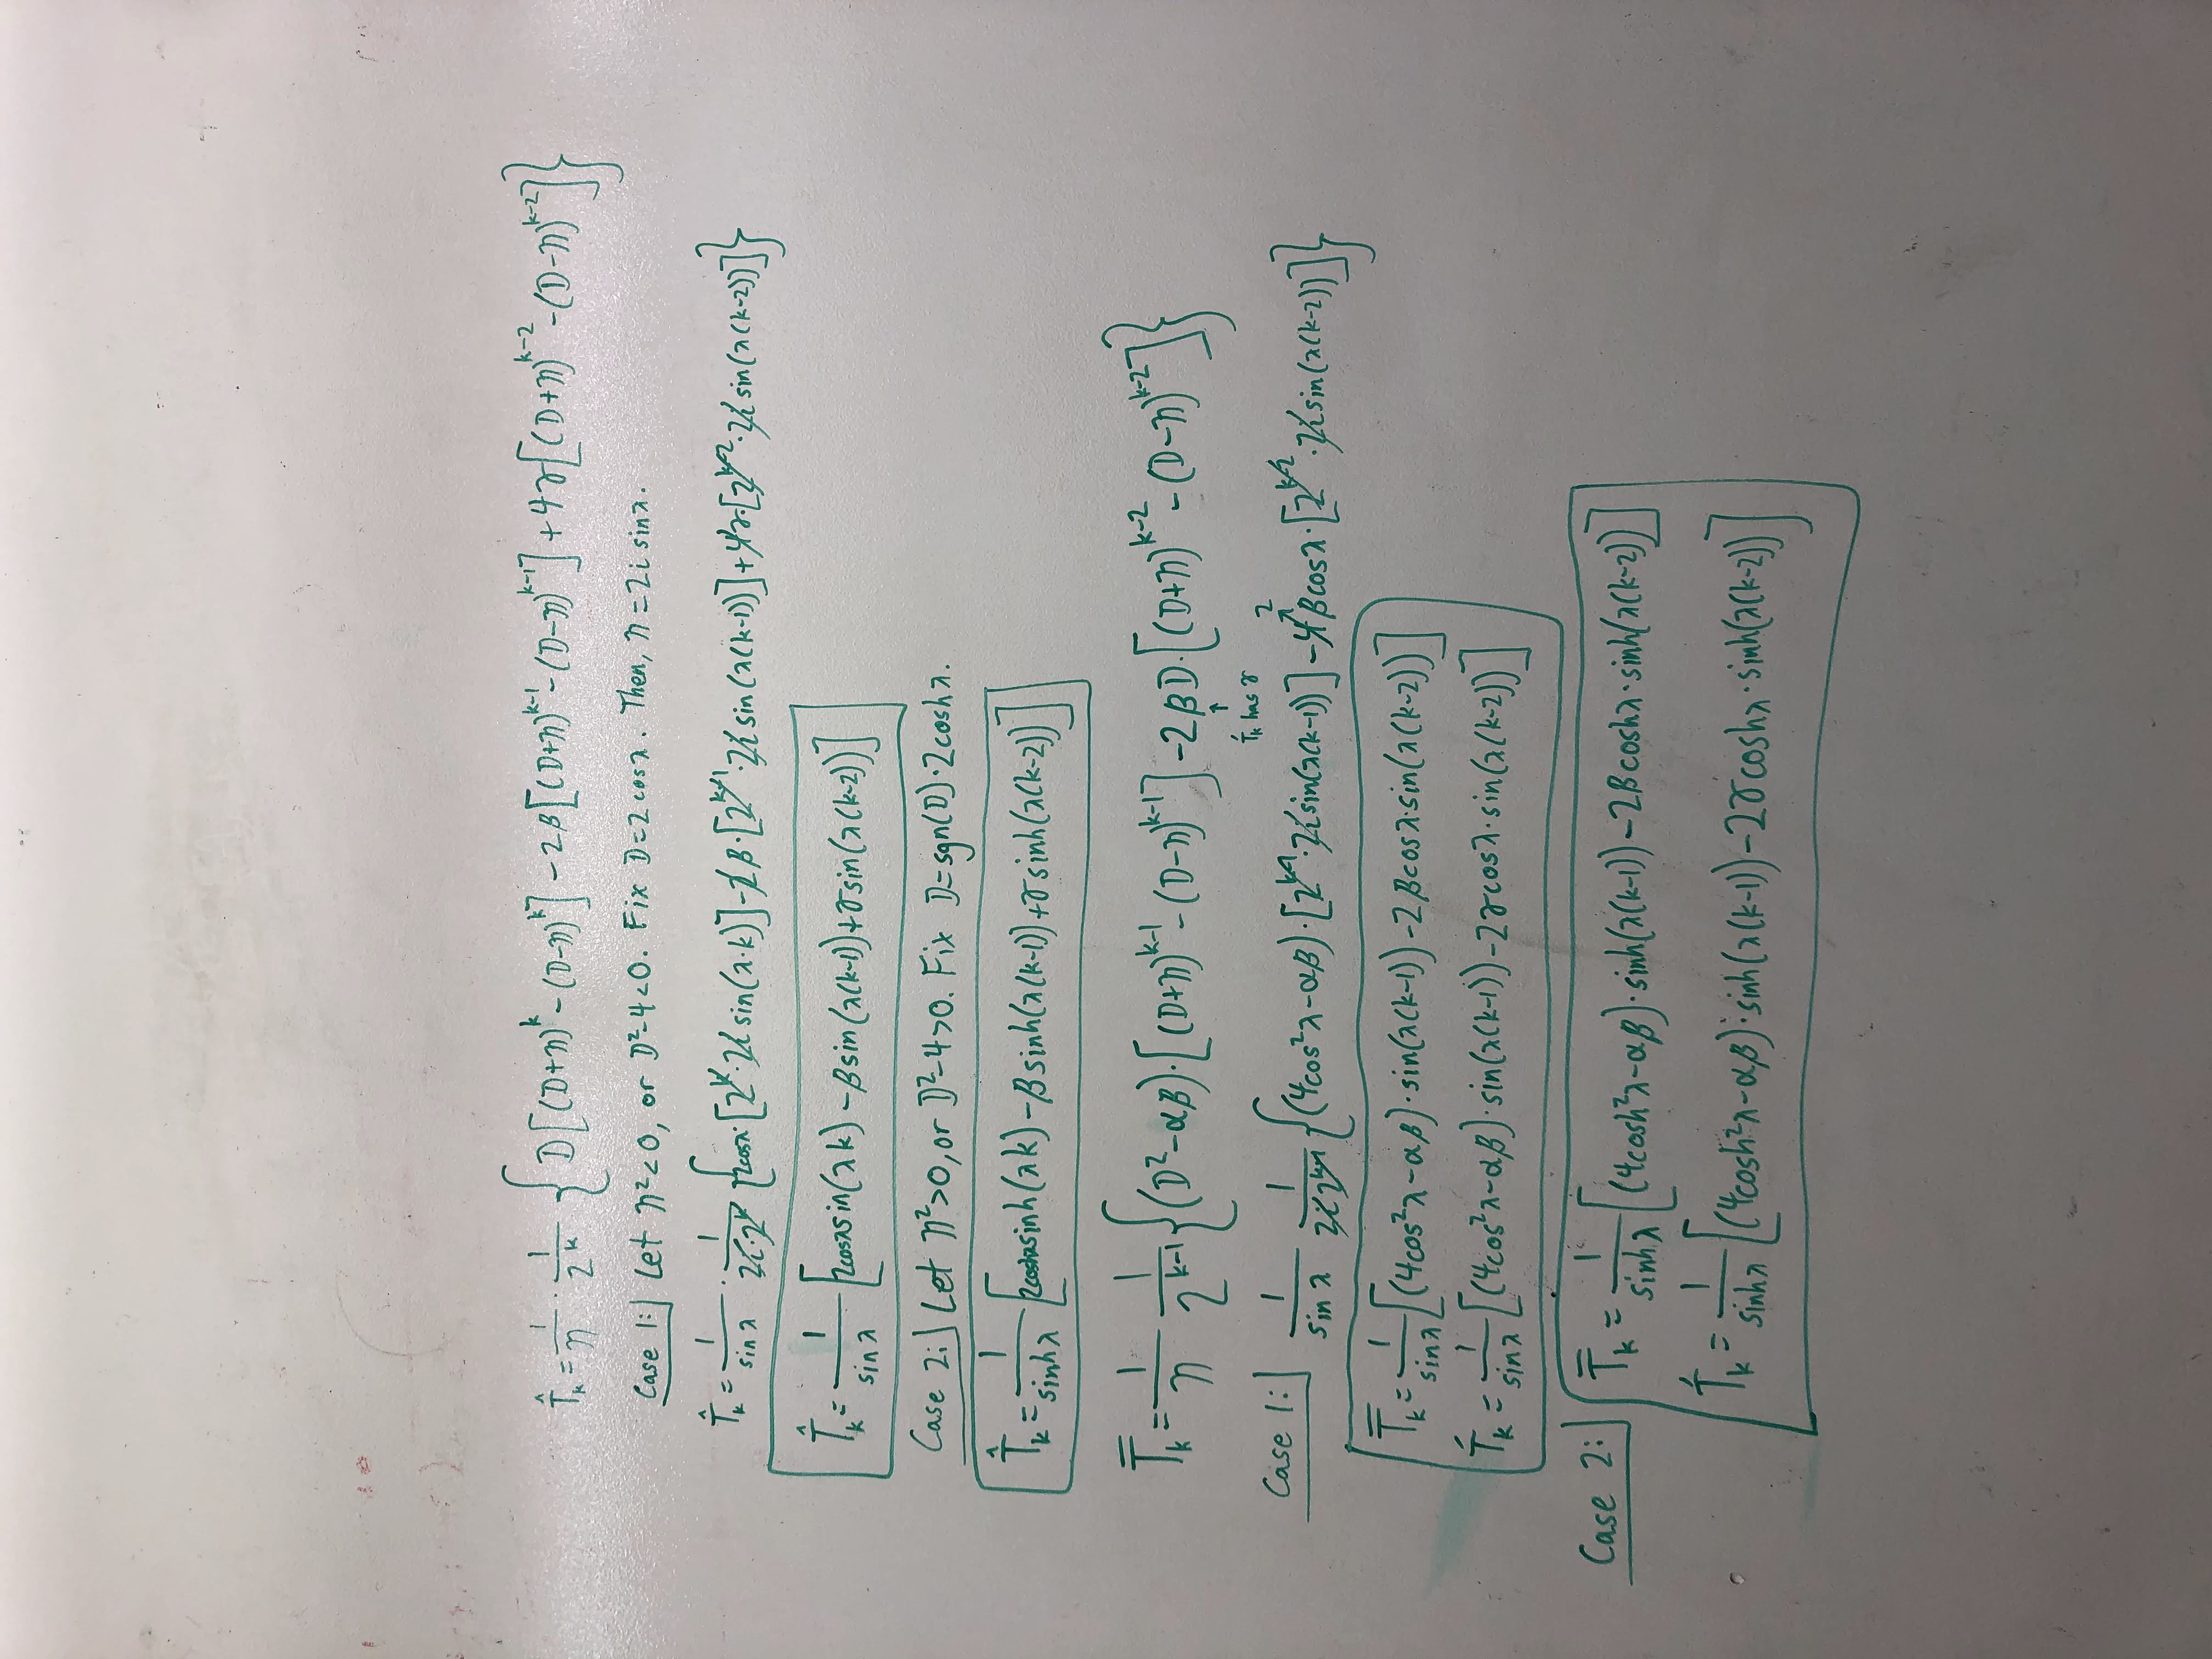 T̂_k = 1/η · 1/2^k { D[(D+η)^k - (D-η)^k] - 2β[(D+η)^{k-1} - (D-η)^{k-1}] + 4γ[(D+η)^{k-2} - (D-η)^{k-2}] }
Case 1: Let η²<0, or D²-4<0. Fix D=2cosλ. Then, η=2i sinλ.
T̂_k = 1/sinλ · 1/(2i·2^k) { 2cosλ·[2^k·2i sin(λ·k)] - 2β·[2^{k-1}·2i sin(λ(k-1))] + 4γ·[2^{k-2}·2i sin(λ(k-2))] }
T̂_k = 1/sinλ [2cosλsin(λk) - βsin(λ(k-1)) + γsin(λ(k-2))]
Case 2: Let η²>0, or D²-4>0. Fix D=sgn(D)·2coshλ.
T̂_k = 1/sinhλ [2coshλsinh(λk) - βsinh(λ(k-1)) + γsinh(λ(k-2))]
T̿_k = 1/η 1/2^{k-1} { (D²-αβ)·[(D+η)^{k-1} - (D-η)^{k-1}] - 2βD·[(D+η)^{k-2} - (D-η)^{k-2}] }
↑
T́_k has γ
Case 1: 1/sinλ 1/(2i·2^{k-1}) { (4cos²λ-αβ)·[2^{k-1}·2i sin(λ(k-1))] - 4 2 βcosλ·[2^{k-2}·2i sin(λ(k-2))] }
T̿_k = 1/sinλ [(4cos²λ-αβ)·sin(λ(k-1)) - 2βcosλ·sin(λ(k-2))]
T́_k = 1/sinλ [(4cos²λ-αβ)·sin(λ(k-1)) - 2γcosλ·sin(λ(k-2))]
Case 2: T̿_k = 1/sinhλ [(4cosh²λ-αβ)·sinh(λ(k-1)) - 2βcoshλ·sinh(λ(k-2))]
T́_k = 1/sinhλ [(4cosh²λ-αβ)·sinh(λ(k-1)) - 2γcoshλ·sinh(λ(k-2))]